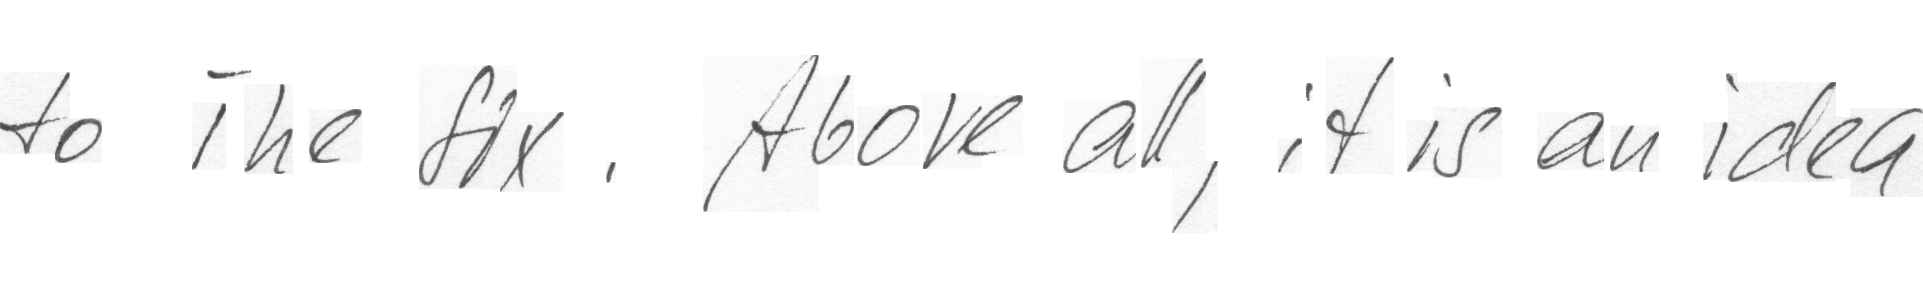 to the fix. Above all, it is an idea